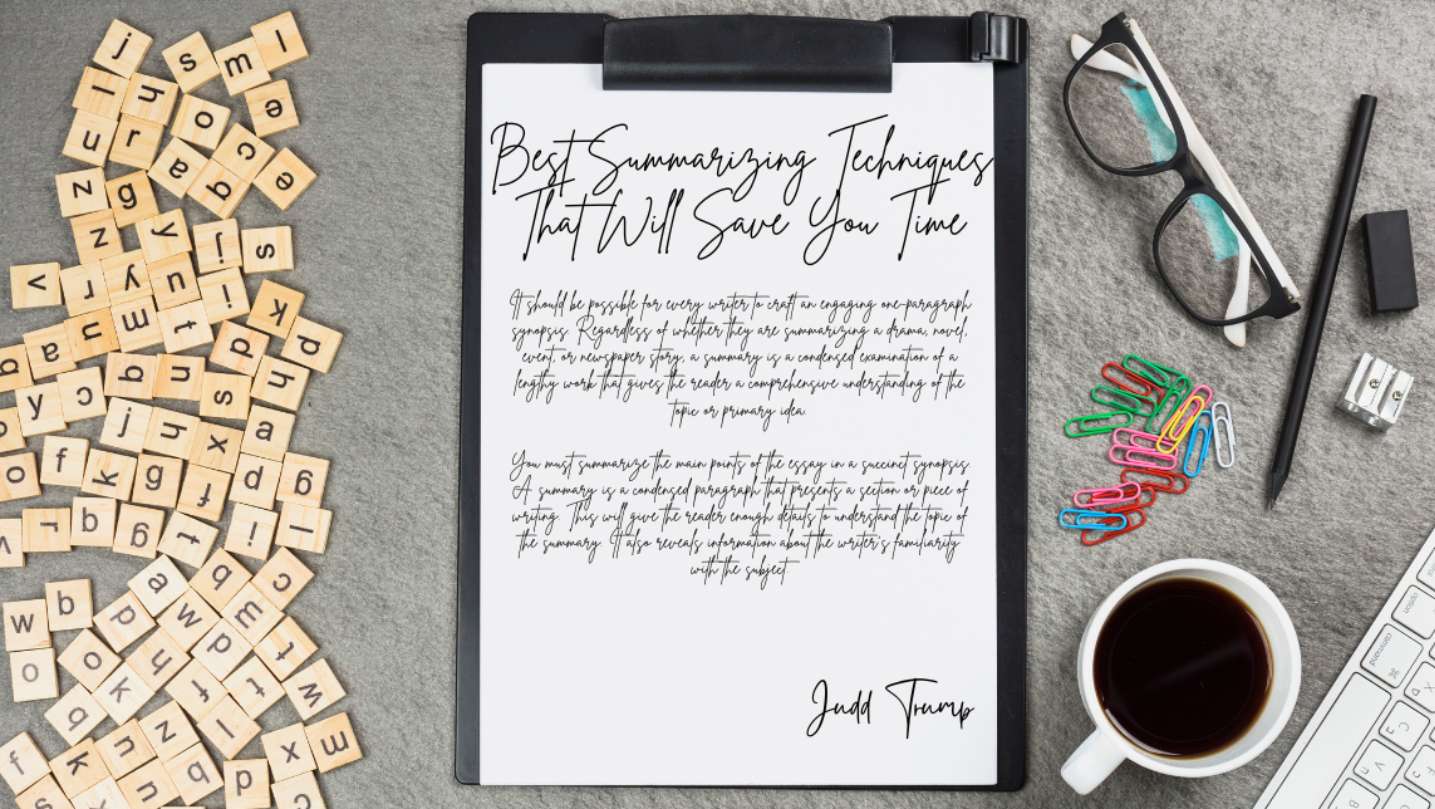 Best Summarizing Techniques
That Will Save You Time
It should be possible for every writer to craft an engaging one-paragraph
synopsis. Regardless of whether they are summarizing a drama, novel,
event, or newspaper story, a summary is a condensed examination of a
lengthy work that gives the reader a comprehensive understanding of the
topic or primary idea.
You must summarize the main points of the essay in a succinct synopsis.
A summary is a condensed paragraph that presents a section or piece of
writing. This will give the reader enough details to understand the topic of
the summary. It also reveals information about the writer's familiarity
with the subject
Judd Trump
option
command